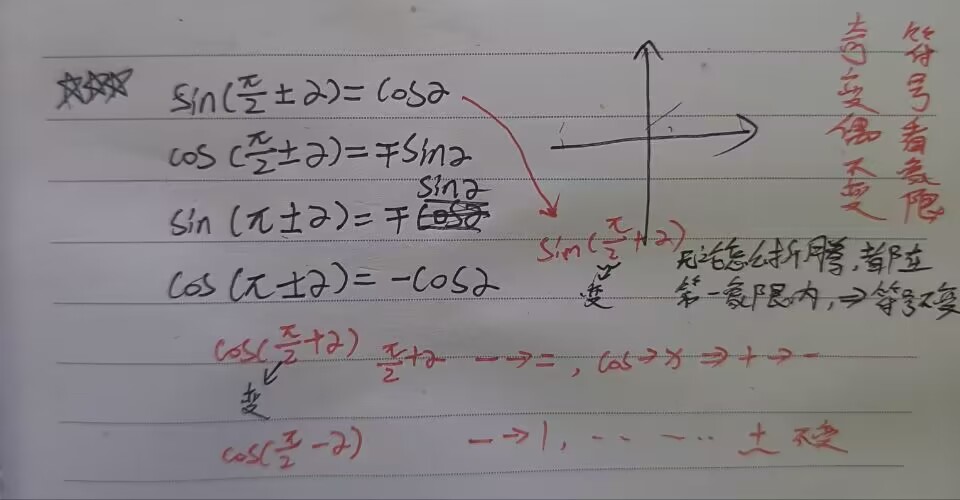 sin(π/2±2)=cos2
cos(π/2±2)=∓sin2
sin2
sin(π±2)=∓
cos(π±2)=-cos2
奇变偶不变
符号看象限
sin(π/2+2)
变
无论怎么折腾,都在
第一象限内,⇒等号不变
cos(π/2+2) π/2+2 一→二,cos→x⇒+→-
变
cos(π/2-2) 一→1,…… ± 不变